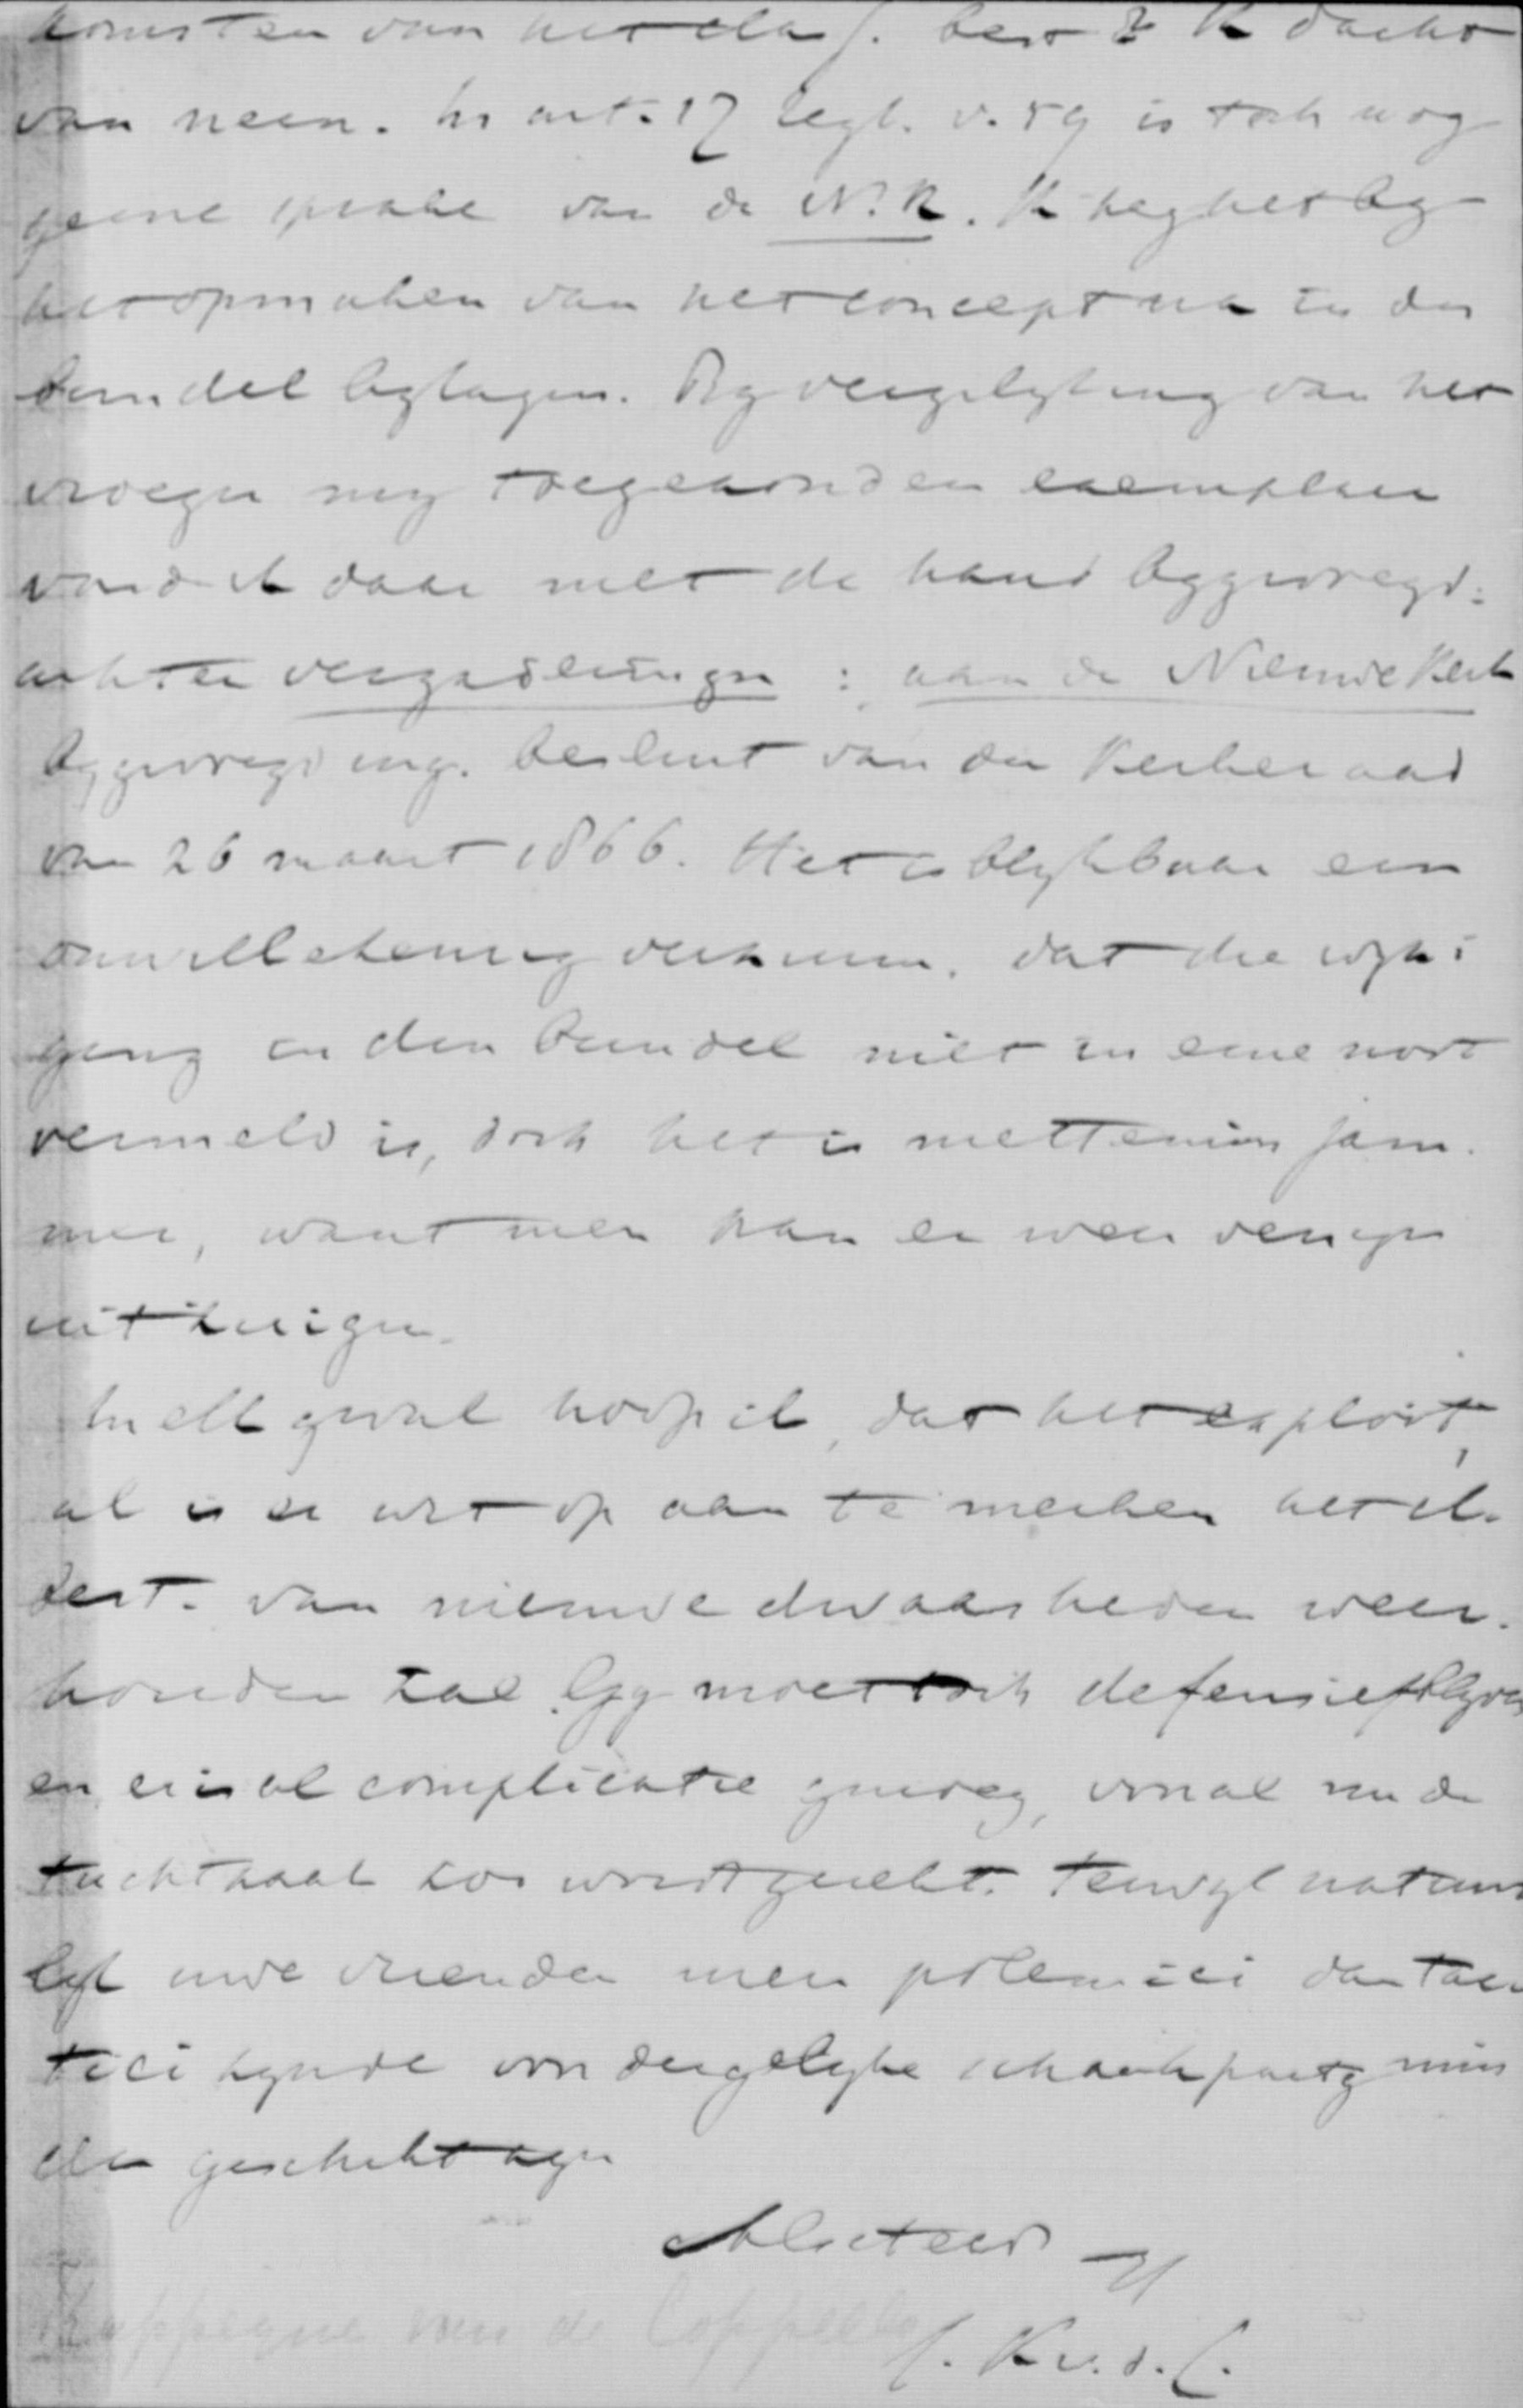 komsten van het clas. best? Ik dacht
van neen. In art. 17 regl. v. 59 is toch nog
geene sprake van de N.K. Ik zag het bij
het opmaken van het concept na in den
bundel bijlagen. Bij vergelijking van het
vroeger mij toegezonden exemplaar
vond ik daar met de hand bijgevoegd:
achter vergaderingen: aan de Nieuwe Kerk
bijgevoegd ing. besluit van den Kerkeraad
van 26 maart 1866. Het is blijkbaar een
onwillekeurig verzuim, dat die wijzi-
ging in den bundel niet in eene noot
vermeld is, doch het is niettemin jam-
mer, want men kan er weer venijn
uit zuigen.
In elk geval hoop ik, dat het exploit,
al is er wat op aan te merken het cl.
best. van nieuwe dwaasheden weer-
houden zal. Gij moet toch defensief blijven
en er is al complicatie genoeg, vooral nu de
tuchtzaak los wordt gerukt. Terwijl natuur
lijk uwe vrienden meer polemici dan tac
tici zijnde voor dergelijke schaakpartij min
der geschikt zijn
t. K v. d. C.
Kappeyne van de Coppello